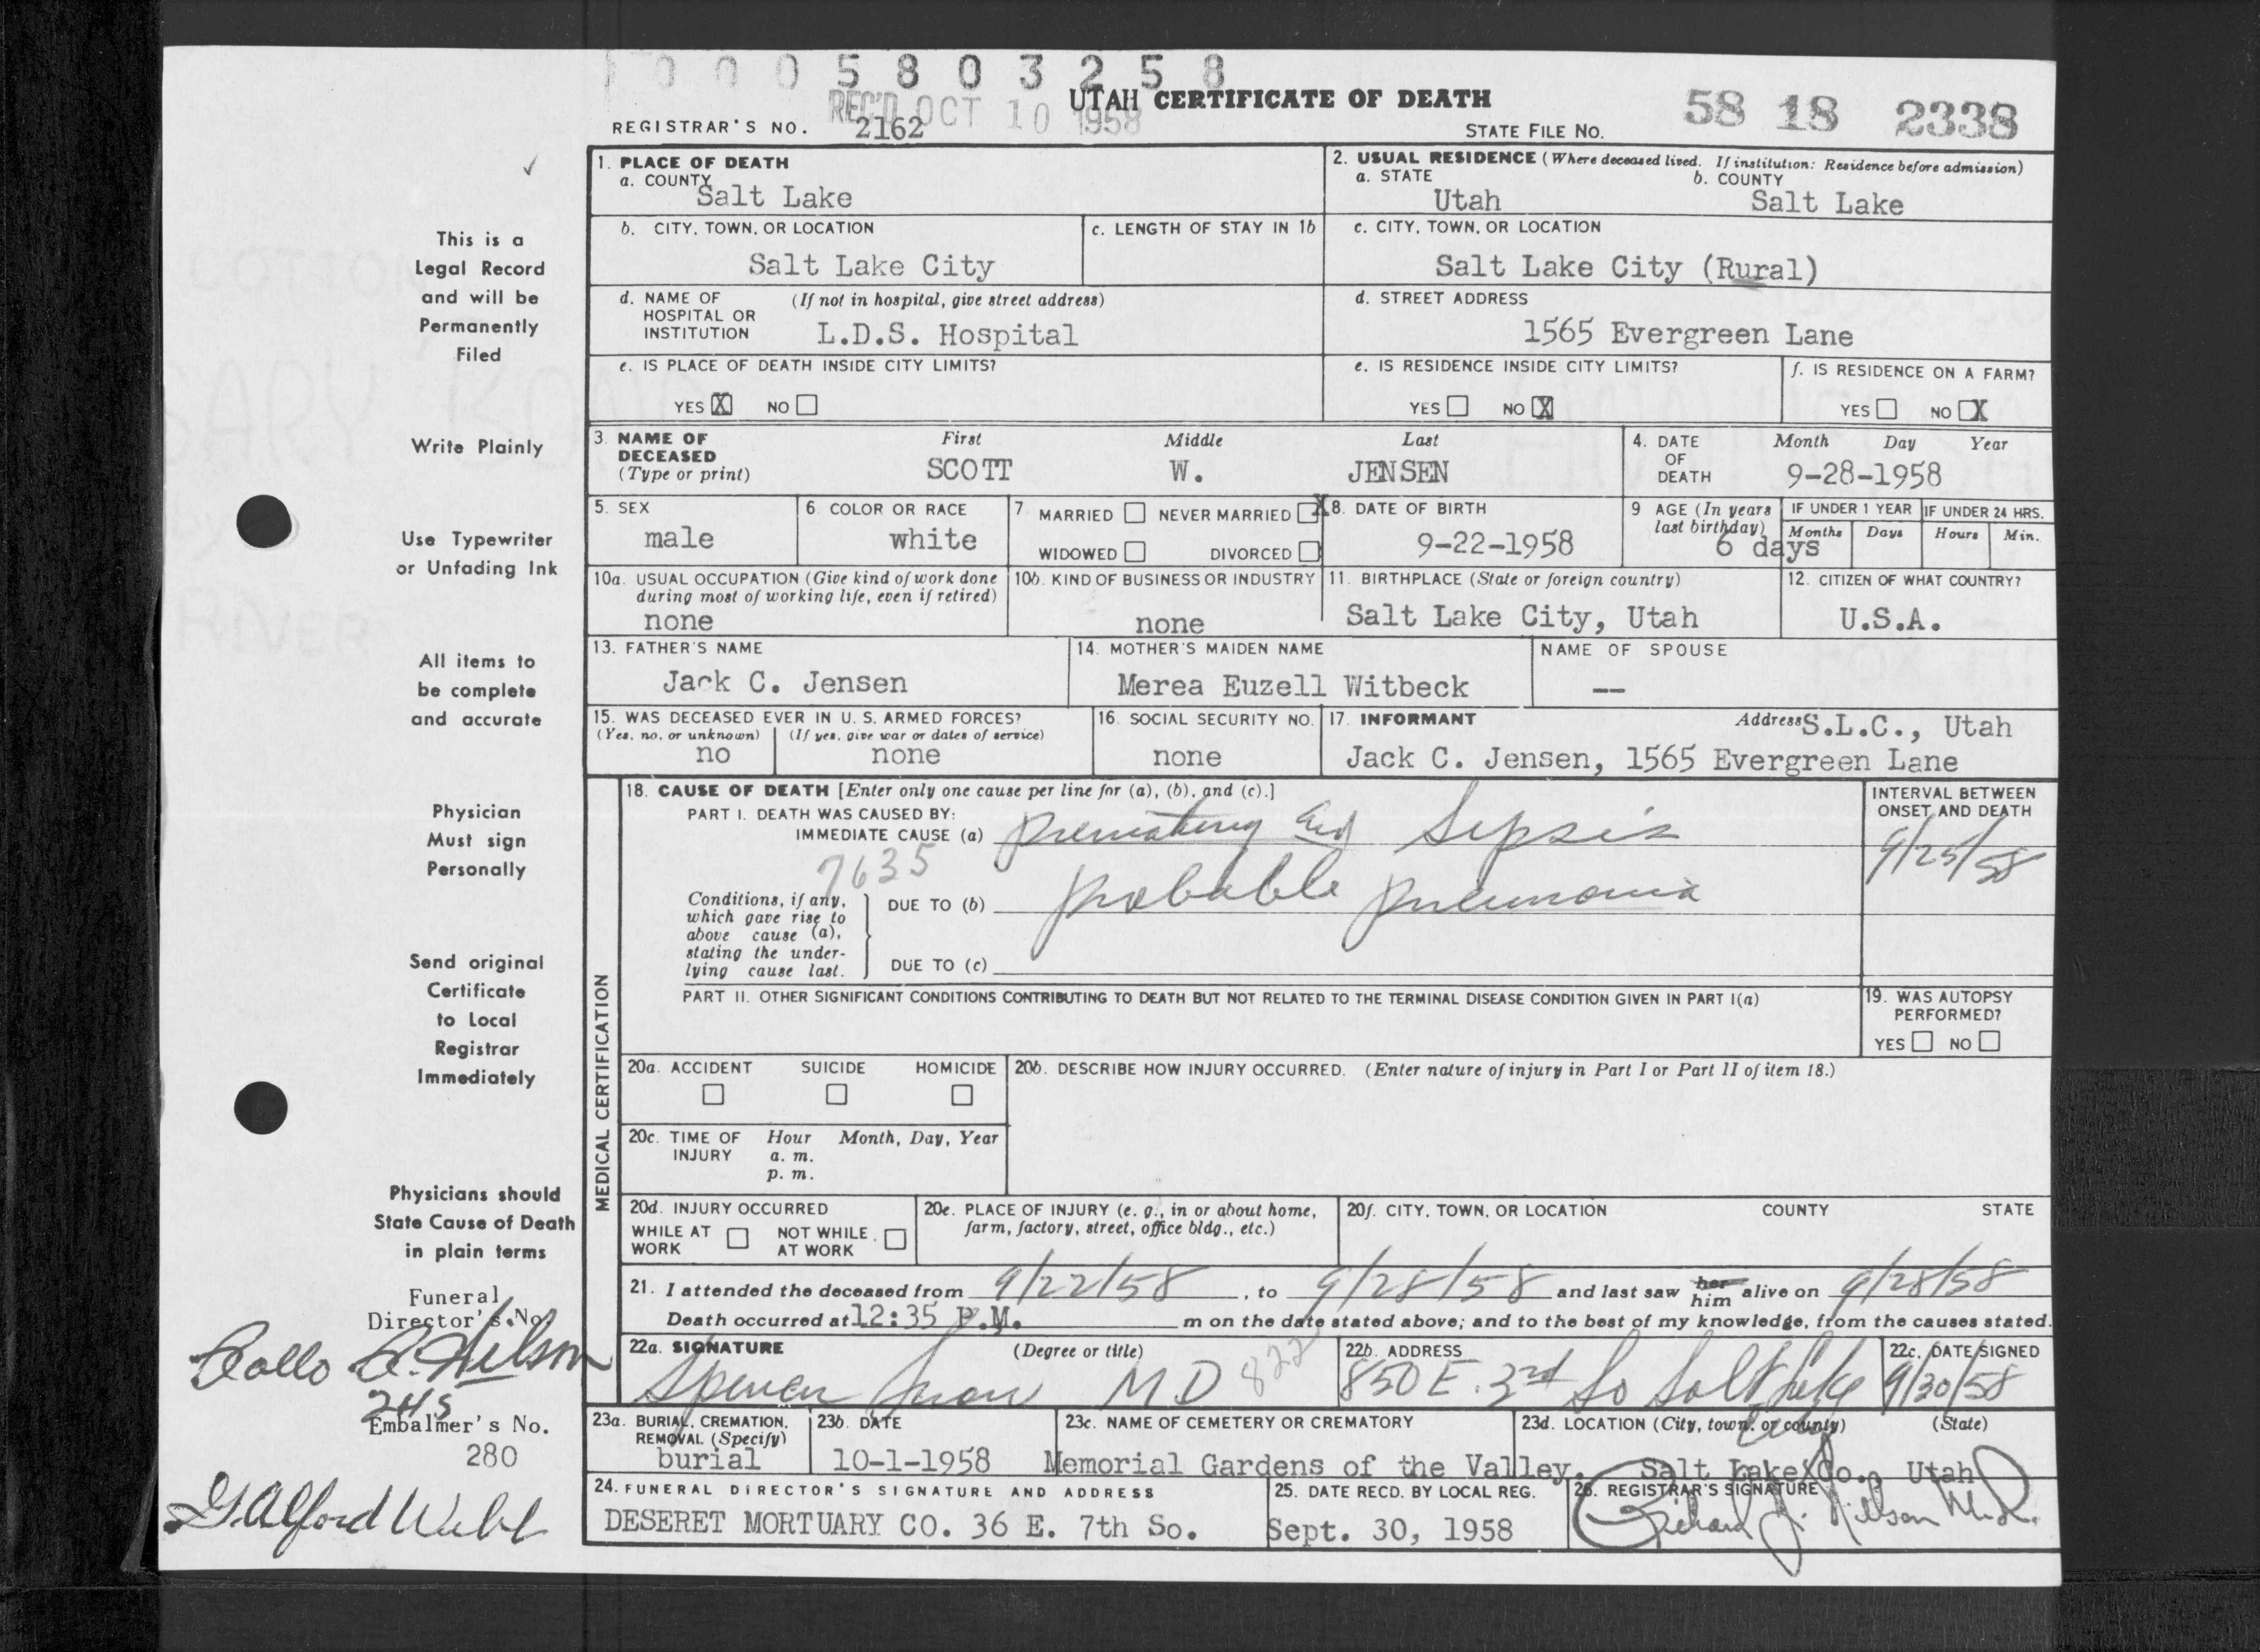 0 0 0 5 8 0 3 2 5 8
REC'D OCT 10 1958
UTAH CERTIFICATE OF DEATH
58 18 2338
REGISTRAR'S NO. 2162
STATE FILE NO.
This is a
Legal Record
and will be
Permanently
Filed
Write Plainly
Use Typewriter
or Unfading Ink
All items to
be complete
and accurate
Physician
Must sign
Personally
Send original
Certificate
to Local
Registrar
Immediately
Physicians should
State Cause of Death
in plain terms
Funeral
Director's No.
Rollo A. Nelson
245
Embalmer's No.
280
G. Alford Webb
1. PLACE OF DEATH
a. COUNTY
Salt Lake
2. USUAL RESIDENCE (Where deceased lived. If institution: Residence before admission)
a. STATE b. COUNTY
Utah Salt Lake
b. CITY, TOWN, OR LOCATION
Salt Lake City
c. LENGTH OF STAY IN 1b
c. CITY, TOWN, OR LOCATION
Salt Lake City (Rural)
d. NAME OF HOSPITAL OR INSTITUTION (If not in hospital, give street address)
L.D.S. Hospital
d. STREET ADDRESS
1565 Evergreen Lane
e. IS PLACE OF DEATH INSIDE CITY LIMITS?
YES X NO
e. IS RESIDENCE INSIDE CITY LIMITS?
YES NO X
f. IS RESIDENCE ON A FARM?
YES NO X
3. NAME OF DECEASED (Type or print)
First Middle Last
SCOTT W. JENSEN
4. DATE OF DEATH
Month Day Year
9-28-1958
5. SEX
male
6. COLOR OR RACE
white
7. MARRIED NEVER MARRIED X
WIDOWED DIVORCED
8. DATE OF BIRTH
9-22-1958
9 AGE (In years last birthday)
IF UNDER 1 YEAR IF UNDER 24 HRS.
Months Days Hours Min.
6 days
10a. USUAL OCCUPATION (Give kind of work done during most of working life, even if retired)
none
10b. KIND OF BUSINESS OR INDUSTRY
none
11. BIRTHPLACE (State or foreign country)
Salt Lake City, Utah
12. CITIZEN OF WHAT COUNTRY?
U.S.A.
13. FATHER'S NAME
Jack C. Jensen
14. MOTHER'S MAIDEN NAME
Merea Euzell Witbeck
NAME OF SPOUSE
--
15. WAS DECEASED EVER IN U. S. ARMED FORCES?
(Yes, no, or unknown) (If yes, give war or dates of service)
no none
16. SOCIAL SECURITY NO.
none
17. INFORMANT Address S.L.C., Utah
Jack C. Jensen, 1565 Evergreen Lane
MEDICAL CERTIFICATION
18. CAUSE OF DEATH [Enter only one cause per line for (a), (b), and (c).]
PART I. DEATH WAS CAUSED BY:
IMMEDIATE CAUSE (a) Prematurity and Sepsis
7635
Conditions, if any, which gave rise to above cause (a), stating the underlying cause last.
DUE TO (b) probable pneumonia
DUE TO (c)
INTERVAL BETWEEN ONSET AND DEATH
9/25/58
PART II. OTHER SIGNIFICANT CONDITIONS CONTRIBUTING TO DEATH BUT NOT RELATED TO THE TERMINAL DISEASE CONDITION GIVEN IN PART I(a)
19. WAS AUTOPSY PERFORMED?
YES NO
20a. ACCIDENT SUICIDE HOMICIDE
20b. DESCRIBE HOW INJURY OCCURRED. (Enter nature of injury in Part I or Part II of item 18.)
20c. TIME OF INJURY Hour Month, Day, Year
a. m.
p. m.
20d. INJURY OCCURRED
WHILE AT WORK NOT WHILE AT WORK
20e. PLACE OF INJURY (e. g., in or about home, farm, factory, street, office bldg., etc.)
20f. CITY, TOWN, OR LOCATION COUNTY STATE
21. I attended the deceased from 9/22/58, to 9/28/58 and last saw her him alive on 9/28/58
Death occurred at 12:35 P.M. m on the date stated above; and to the best of my knowledge, from the causes stated.
22a. SIGNATURE (Degree or title)
Spencer Snow MD 822
22b. ADDRESS
850 E. 3rd So Salt Lake City
22c. DATE SIGNED
9/30/58
23a. BURIAL, CREMATION, REMOVAL (Specify)
burial
23b. DATE
10-1-1958
23c. NAME OF CEMETERY OR CREMATORY
Memorial Gardens of the Valley.
23d. LOCATION (City, town, or county) (State)
Salt Lake Co., Utah
24. FUNERAL DIRECTOR'S SIGNATURE AND ADDRESS
DESERET MORTUARY CO. 36 E. 7th So.
25. DATE RECD. BY LOCAL REG.
Sept. 30, 1958
26. REGISTRAR'S SIGNATURE
Richard J. Nilson M.D.